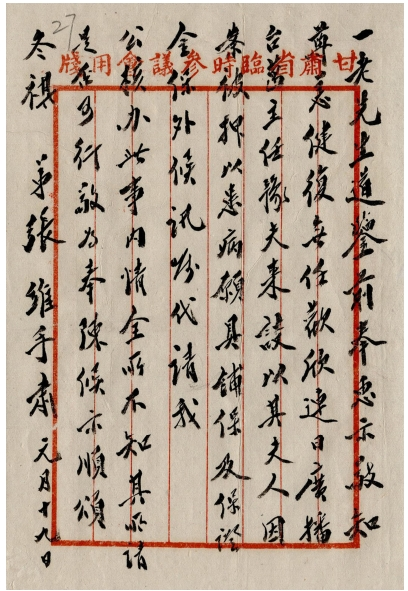 甘肅省臨時參議會用牋
27
一老先生道鑒前奉惠示敬知
尊恙健復無任歡欣連日廣播
台黃主任豫夫來談以其夫人因
案被押以患病願具鋪保及保證
金保外候訊囑代請我
公核辦此事內情全所不知其所請
是否可行敬為奉陳候示順頌
冬祺 弟張維手肅 元月十九日